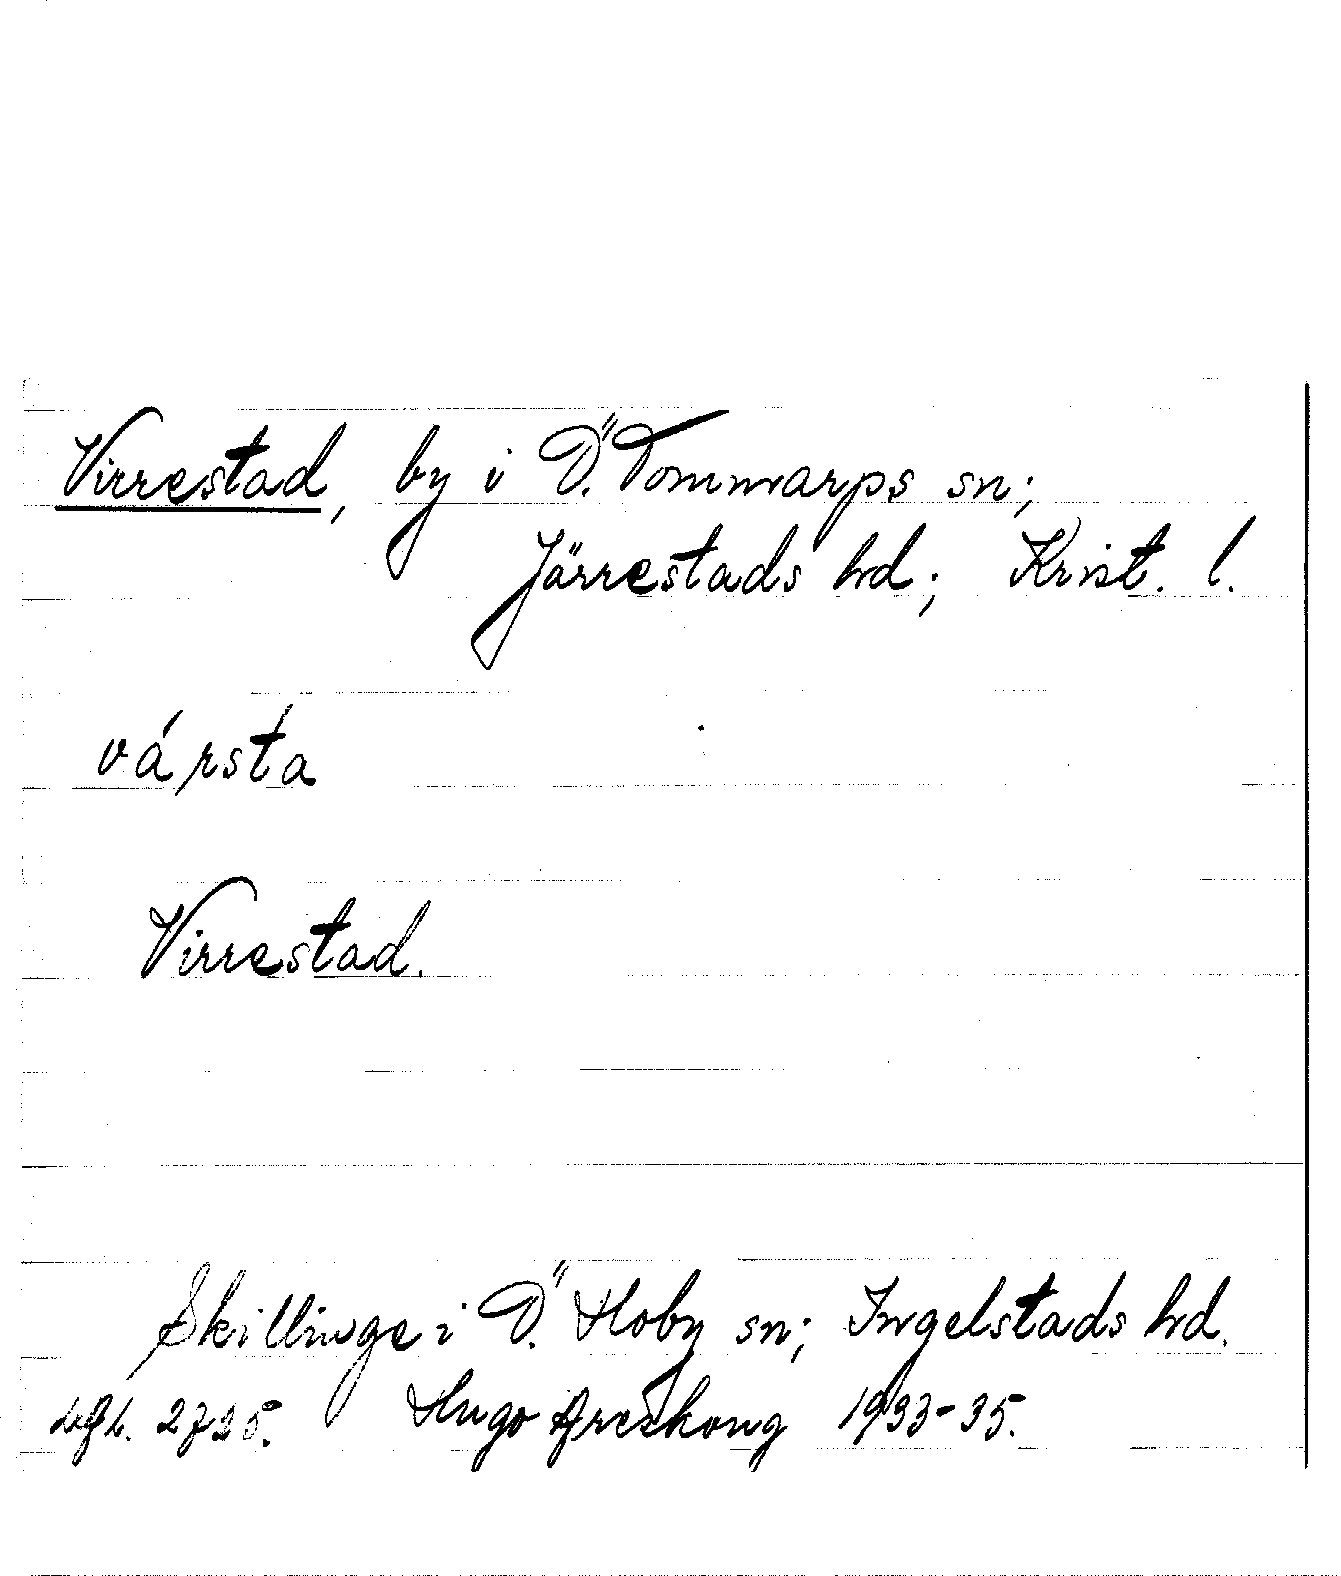 Virrestad, by i Ö. Tommarps sn;
Järrestads hd; Krist. l.
vársta
Virrestad.
Skillinge i Ö. Hoby sn; Ingelstads hd.
Hugo Areskoug 1933-35.